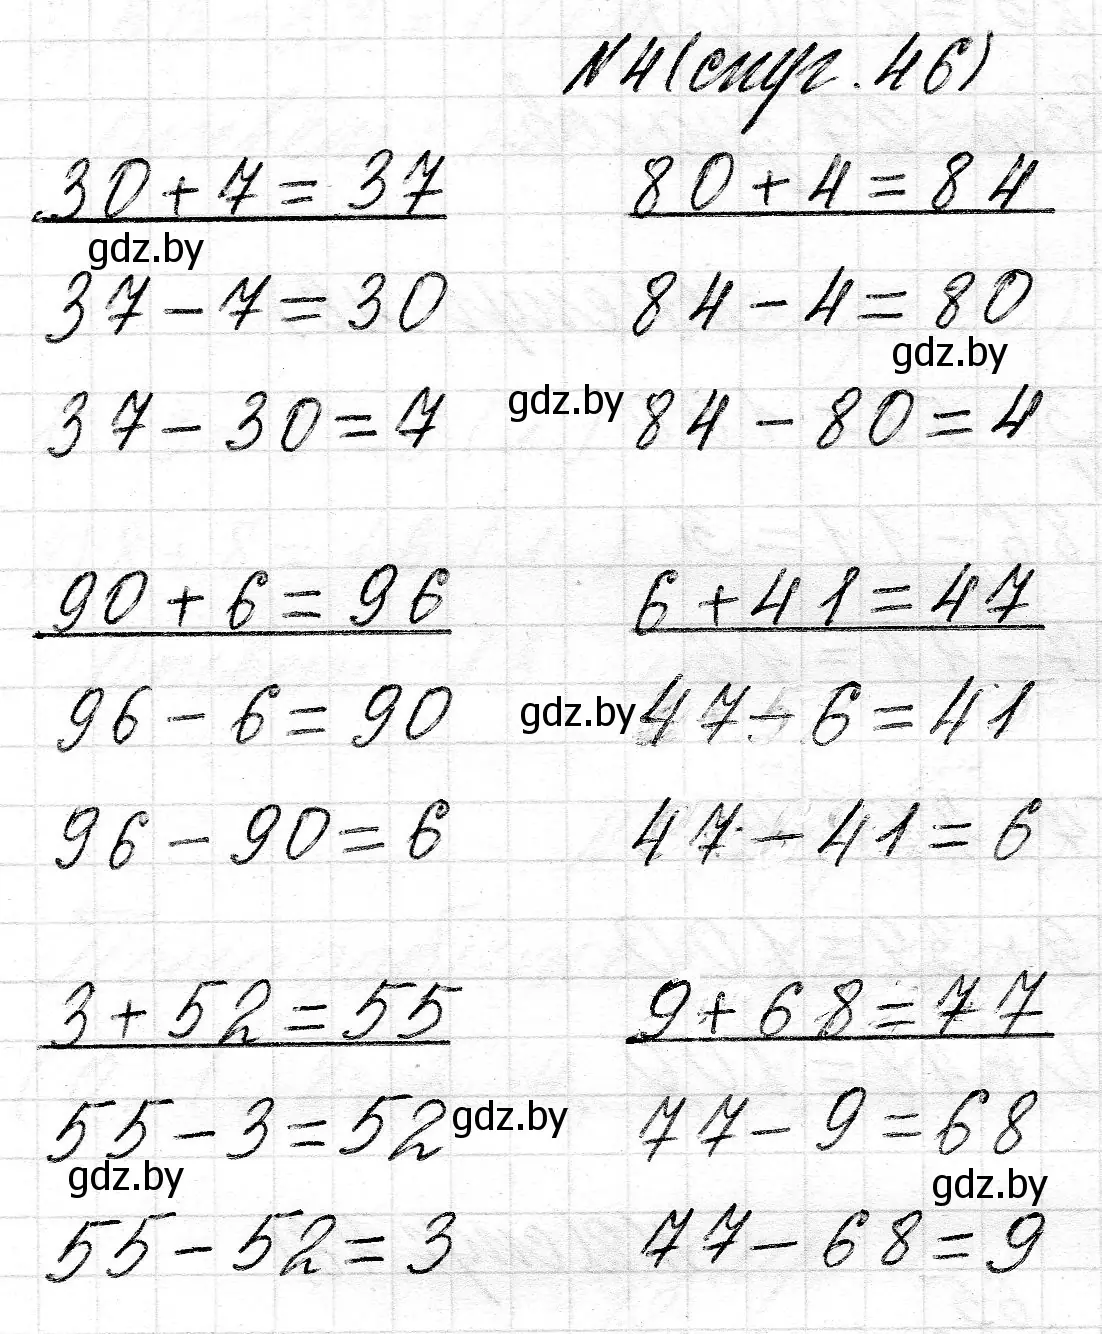 №4 (снуг. 46)
30+7=37 80+4=84
gdz.by
37-7=30 84-4=80
gdz.by
37-30=7 gdz.by 84-80=4
90+6=96 6+41=47
96-6=90 gdz.by 47-6=41
96-90=6 47-41=6
3+52=55 9+68=77
55-3=52 gdz.by 77-9=68
gdz.by gdz.by
55-52=3 77-68=9